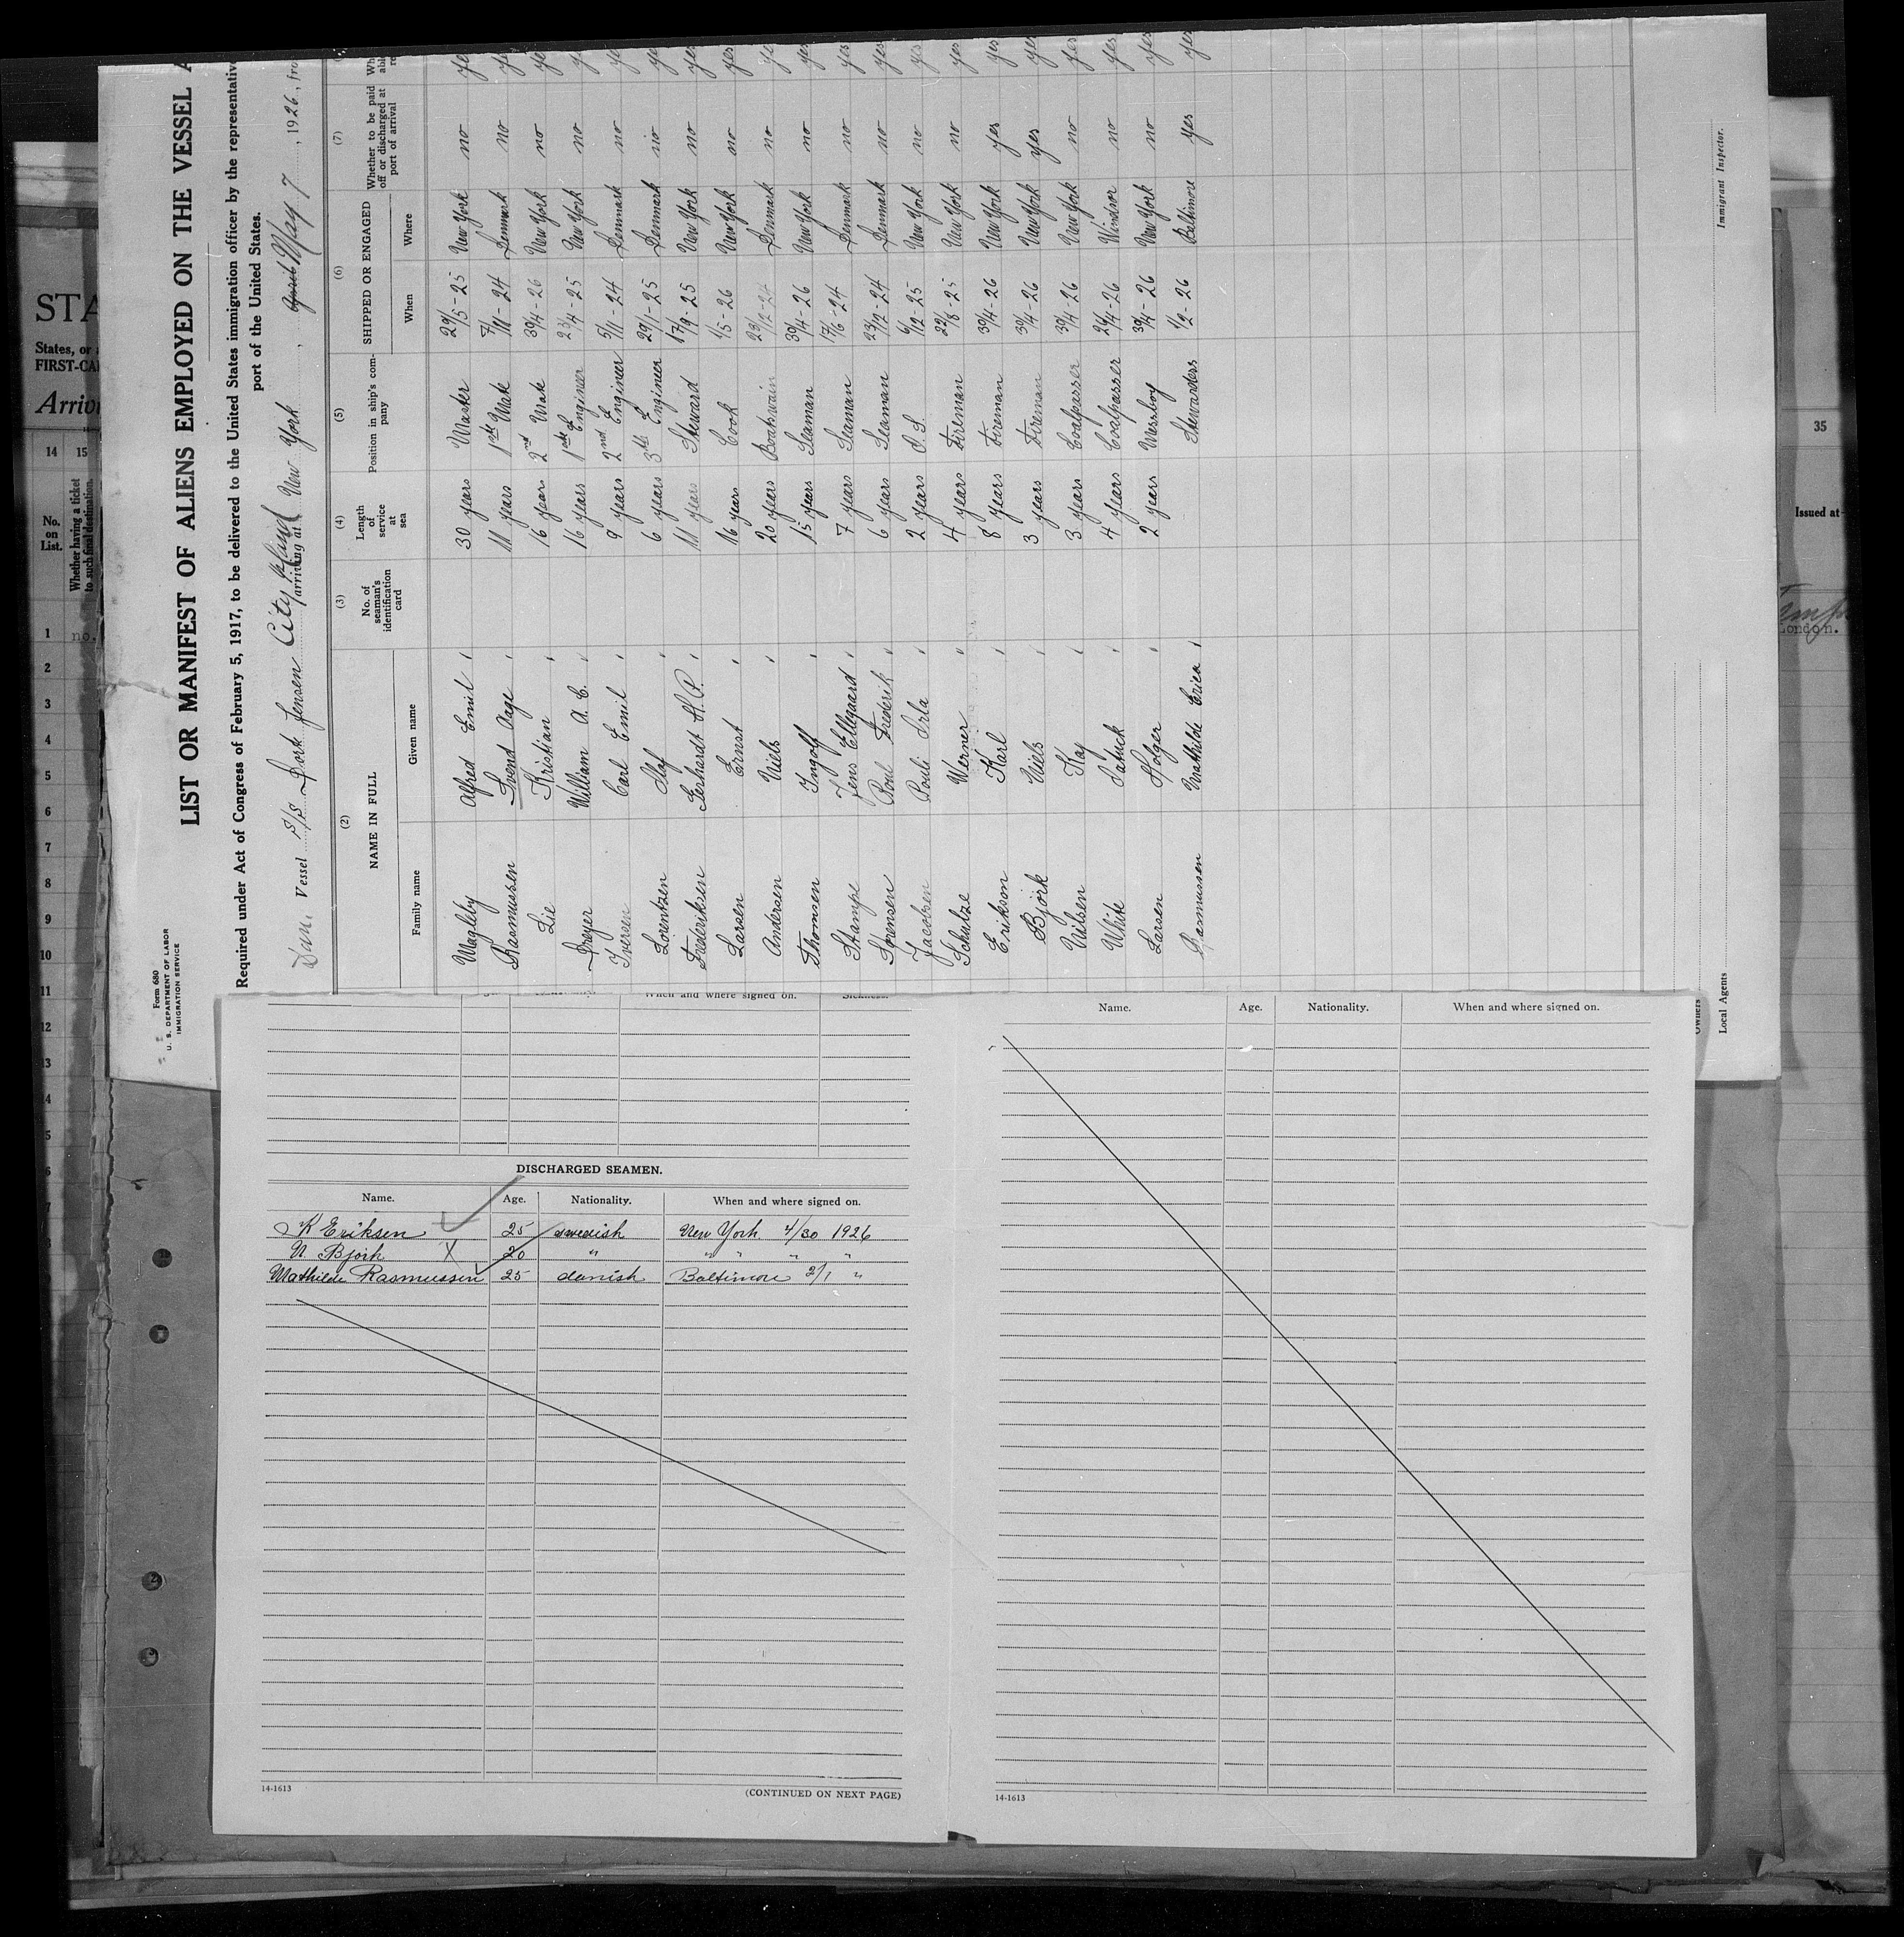 Form 680
U. S. DEPARTMENT OF LABOR
IMMIGRATION SERVICE
LIST OR MANIFEST OF ALIENS EMPLOYED ON THE VESSEL A
Required under Act of Congress of February 5, 1917, to be delivered to the United States immigration officer by the representative
port of the United States.
Vessel S/S Dork Jensen City Island arriving at New York, April May 7, 1926, fro
(2) (3) (4) (5) (6) (7)
NAME IN FULL No. of seaman's identification card Length of service at sea Position in ship's company SHIPPED OR ENGAGED Whether to be paid off or discharged at port of arrival
Family name Given name When Where
Magleby Alfred Emil 30 years Master 29/5-25 New York no
Rasmussen Svend Aage 11 years 1ste Mate /11-24 Denmark no
Lie Kristian 16 years 2nd Mate 30/4-26 New York no
Dreyer William A. C. 16 years 1ste Engineer 23/4-25 New York no
Iversen Carl Emil 9 years 2nd Engineer 5/11-24 Denmark no
Lorentzen Olaf 6 years 3th Engineer 29/1-25 Denmark no
Frederiksen Gerhardt H.P. 11 years Steward 17/9-25 New York no
Larsen Ernst 16 years Cook 1/5-26 New York no
Andersen Niels 20 years Boatswain 23/12-24 Denmark no
Thomsen Ingolf 15 years Seaman 30/4-26 New York no
Stampe Jens Ellegaard 7 years Seaman 17/6-24 Denmark no
Sørensen Poul Frederik 6 years Seaman 23/12-24 Denmark no
Jacobsen Pouli Irla 2 years O.S. 6/12-25 New York no
Schulze Werner 4 years Fireman 22/8-25 New York no
Erikson Karl 8 years Fireman 30/4-26 New York yes
Bjørk Niels 3 years Fireman 30/4-26 New York yes
Nilsen Kay 3 years Coalpasser 30/4-26 New York no
White Patuck 4 years Coalpasser 26/4-26 Windsor no
Larsen Holger 2 years Messboy 30/4-26 New York no
Rasmussen Mathilde Erica Stewardess 1/2-26 Baltimore yes
Immigrant Inspector.
Owners
Local Agents
STA
States, or
FIRST-CA
Arriv
14 15
No. on List.
Whether having a ticket to such final destination.
1 no.
2
3
4
5
6
7
8
9
10
11
12
35
Issued at
London.
When and where signed on. Sickness.
DISCHARGED SEAMEN.
Name. Age. Nationality. When and where signed on.
K Eriksen 25 swedish New York 4/30 1926
N. Bjørk X 20 " " " " "
Mathilde Rasmussen 25 danish Baltimore 2/1 "
14-1613
(CONTINUED ON NEXT PAGE)
Name. Age. Nationality. When and where signed on.
14-1613